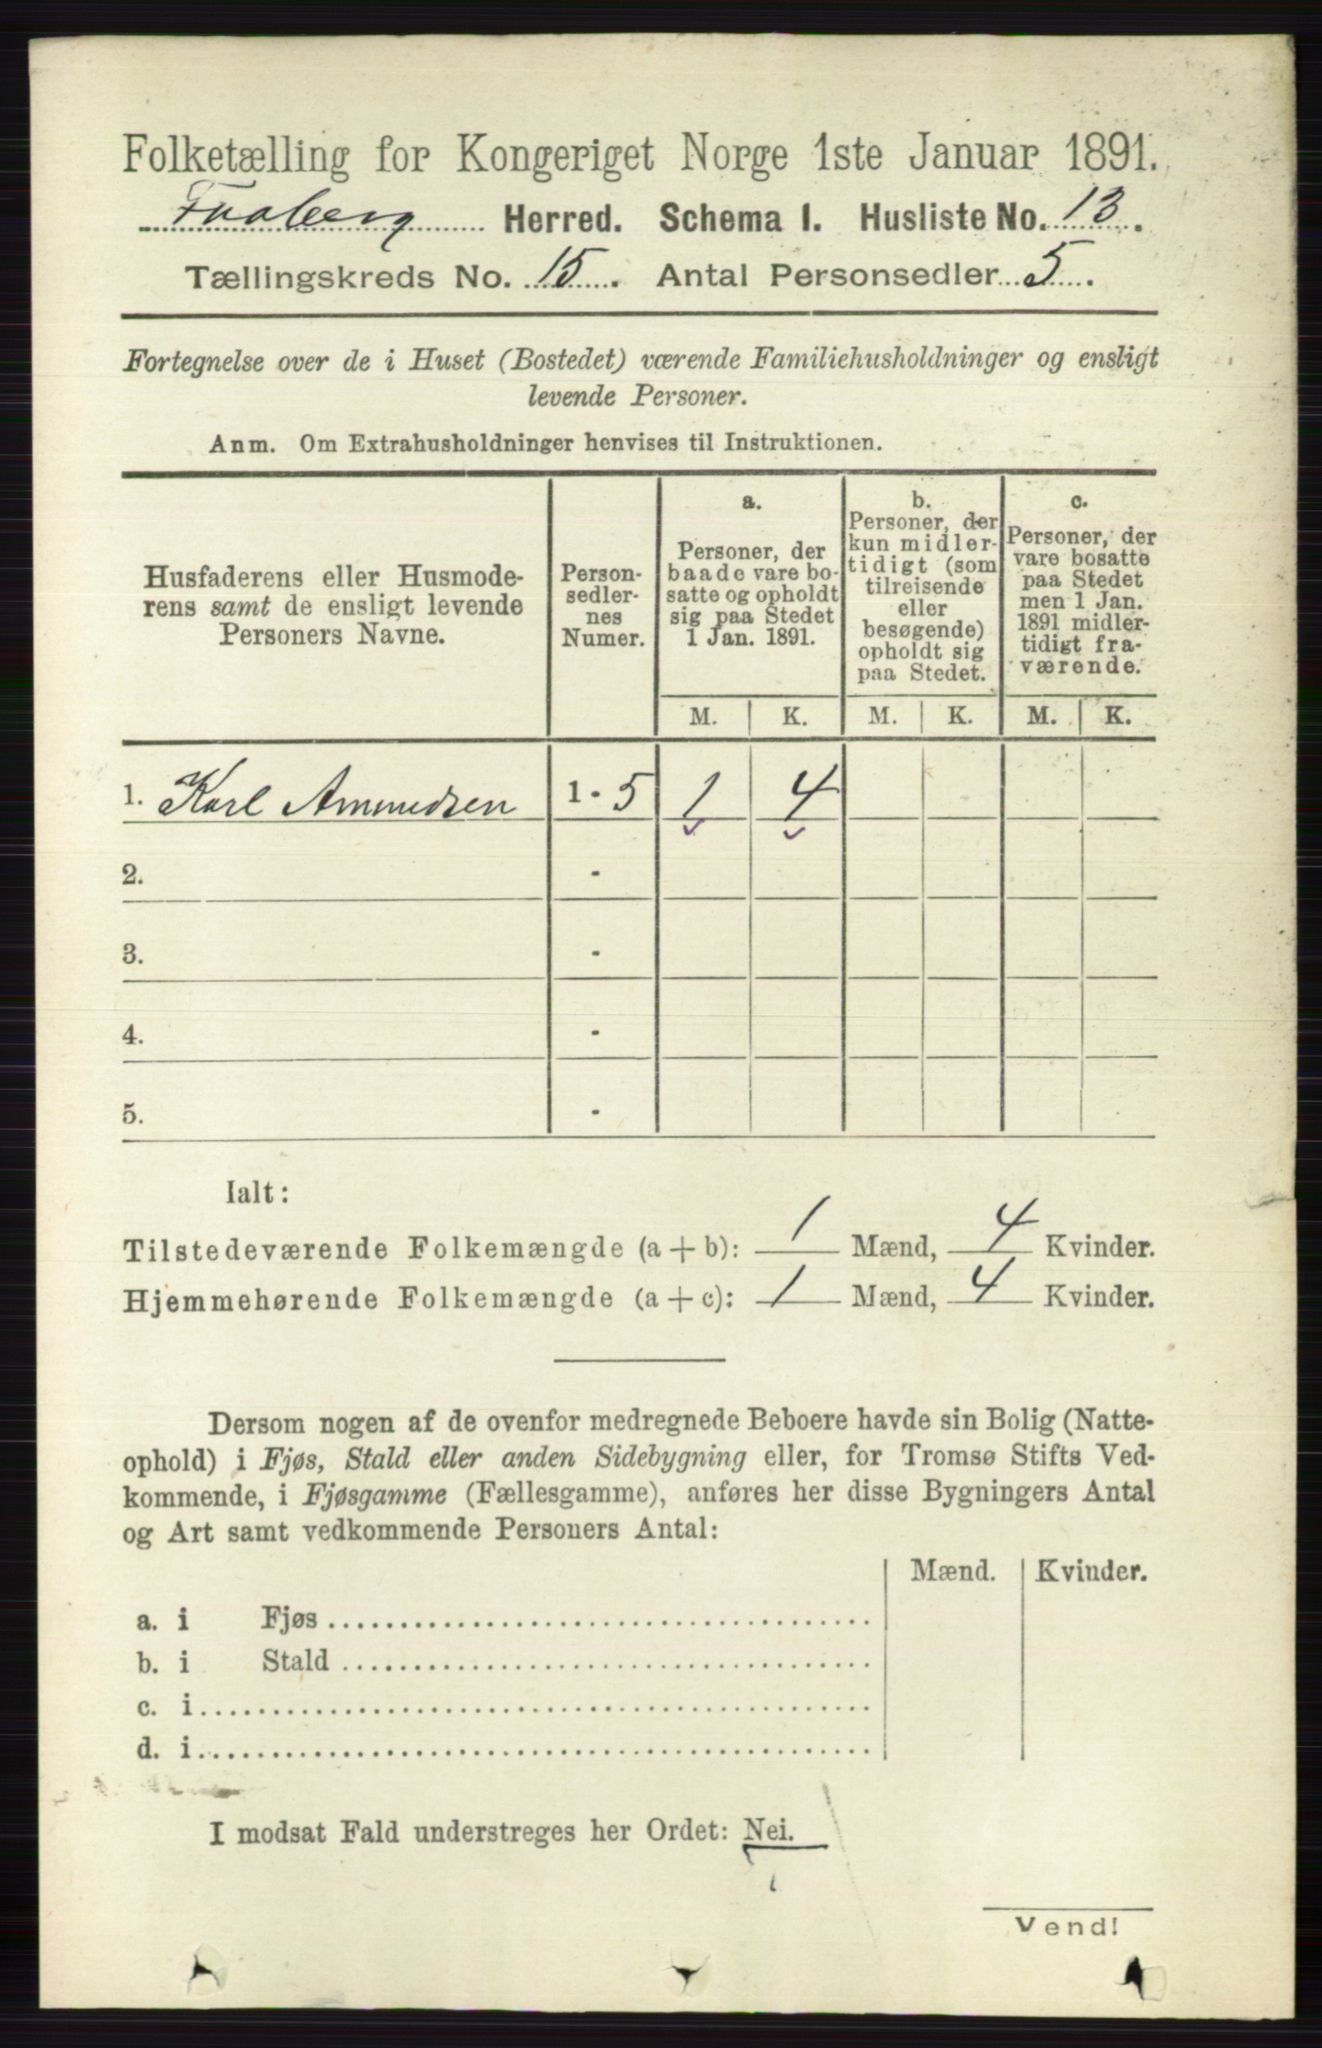 Folketælling for Kongeriget Norge 1ste Januar 1891.
Faaberg Herred. Schema I. Husliste No. 13.
Tællingskreds No. 15. Antal Personsedler 5.
Fortegnelse over de i Huset (Bostedet) værende Familiehusholdninger og ensligt
levende Personer.
Anm. Om Extrahusholdninger henvises til Instruktionen.
Husfaderens eller Husmode-
rens samt de ensligt levende
Personers Navne.
Person-
sedler-
nes
Numer.
a.
Personer, der
baade vare bo-
satte og opholdt
sig paa Stedet
1 Jan. 1891.
b.
Personer, der
kun midler-
tidigt (som
tilreisende
eller
besøgende)
opholdt sig
paa Stedet.
c.
Personer, der
vare bosatte
paa Stedet
men 1 Jan.
1891 midler-
tidigt fra-
værende.
M. K. M. K. M. K.
1. Karl Amundsen 1 - 5 1 4
2. -
3. -
4. -
5. -
Ialt:
Tilstedeværende Folkemængde (a + b): 1 Mænd, 4 Kvinder.
Hjemmehørende Folkemængde (a + c): 1 Mænd, 4 Kvinder.
Dersom nogen af de ovenfor medregnede Beboere havde sin Bolig (Natte-
ophold) i Fjøs, Stald eller anden Sidebygning eller, for Tromsø Stifts Ved-
kommende, i Fjøsgamme (Fællesgamme), anføres her disse Bygningers Antal
og Art samt vedkommende Personers Antal:
Mænd. Kvinder.
a. i Fjøs
b. i Stald
c. i
d. i
I modsat Fald understreges her Ordet: Nei.
Vend!